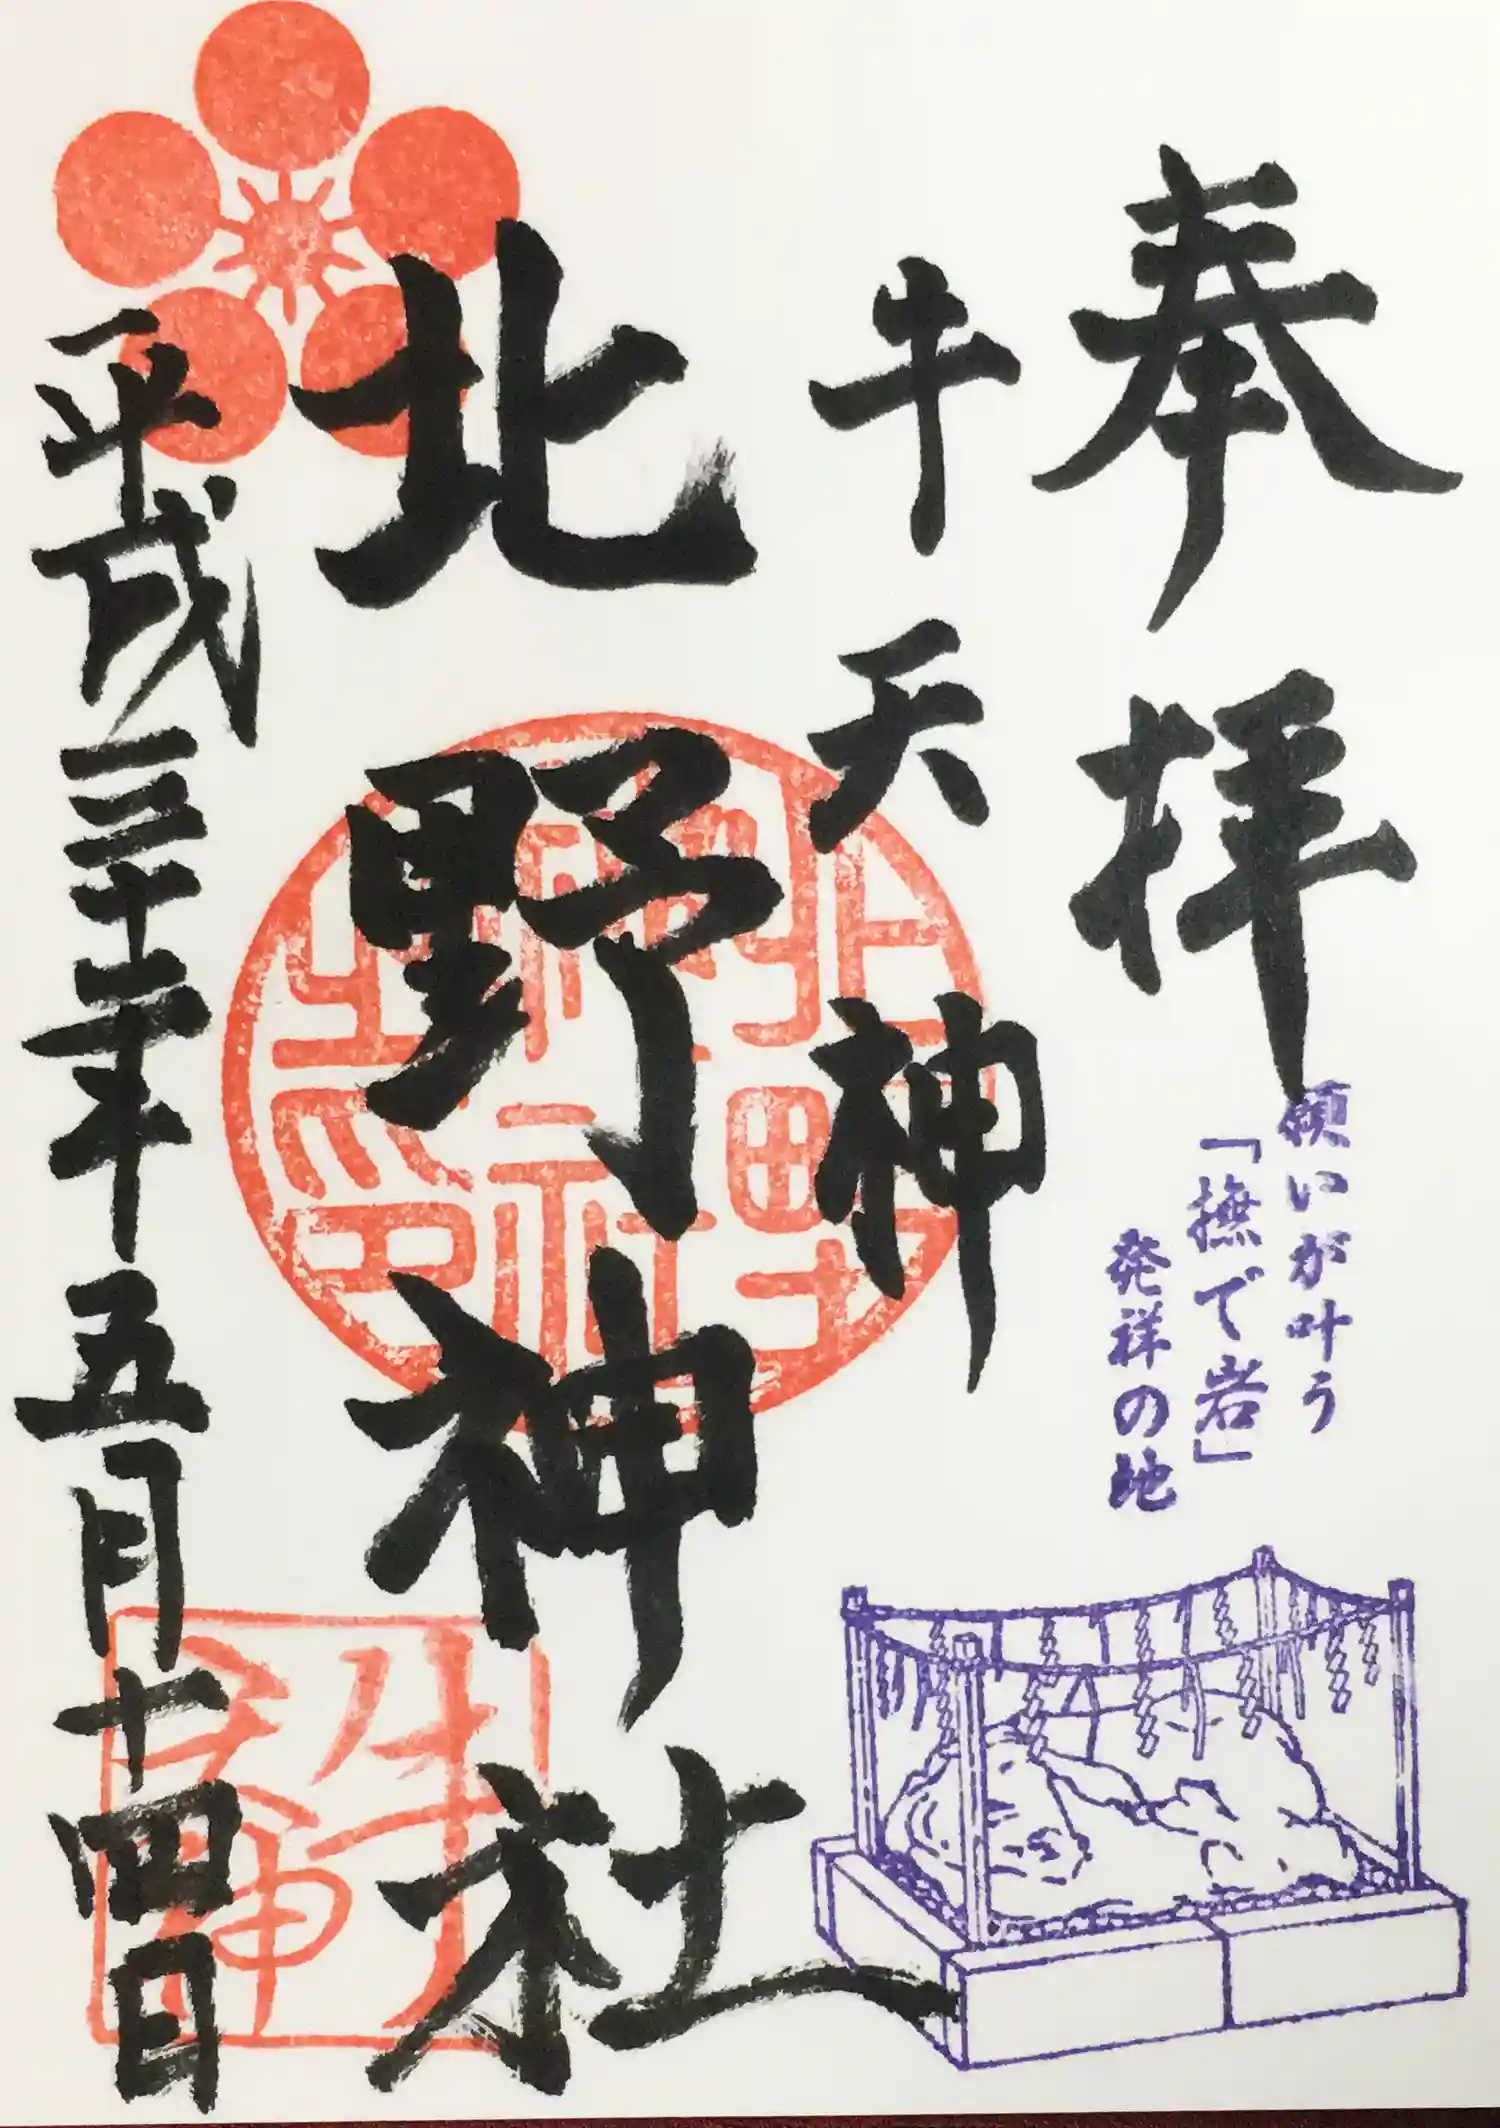 奉拝
願いが叶う
「撫で岩」
発祥の地
牛天神
北野神社
北野
神社
之印
牛
天神
平成三十年五月十四日